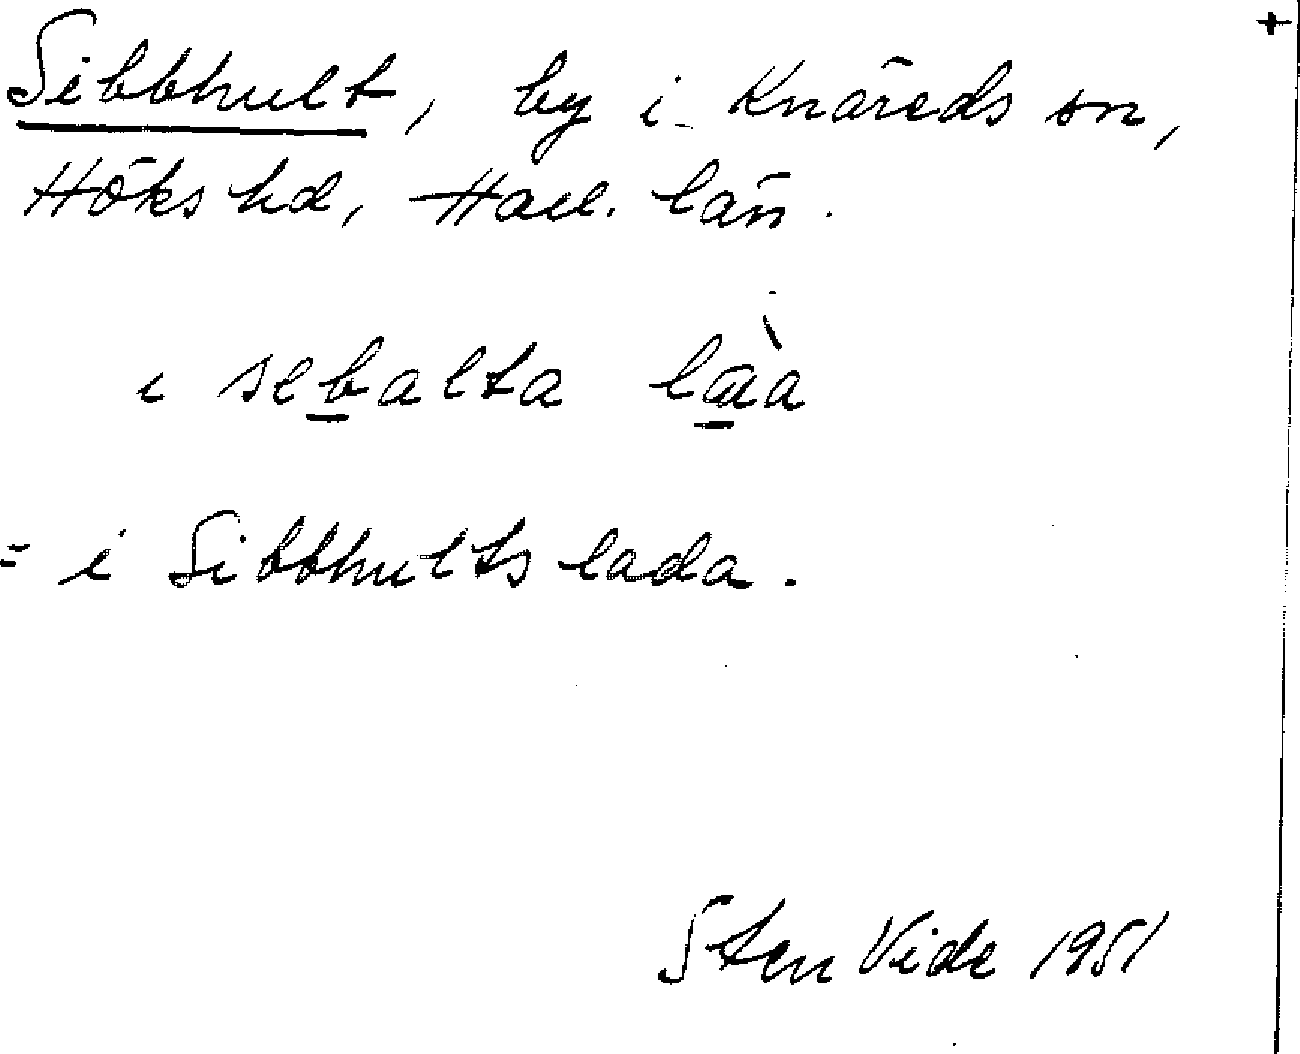 +
Sibbhult, by i Knäreds sn,
Höks hd, Hall. län.
ı sebalta làa
= i Sibbhults lada.
Sten Vide 1951